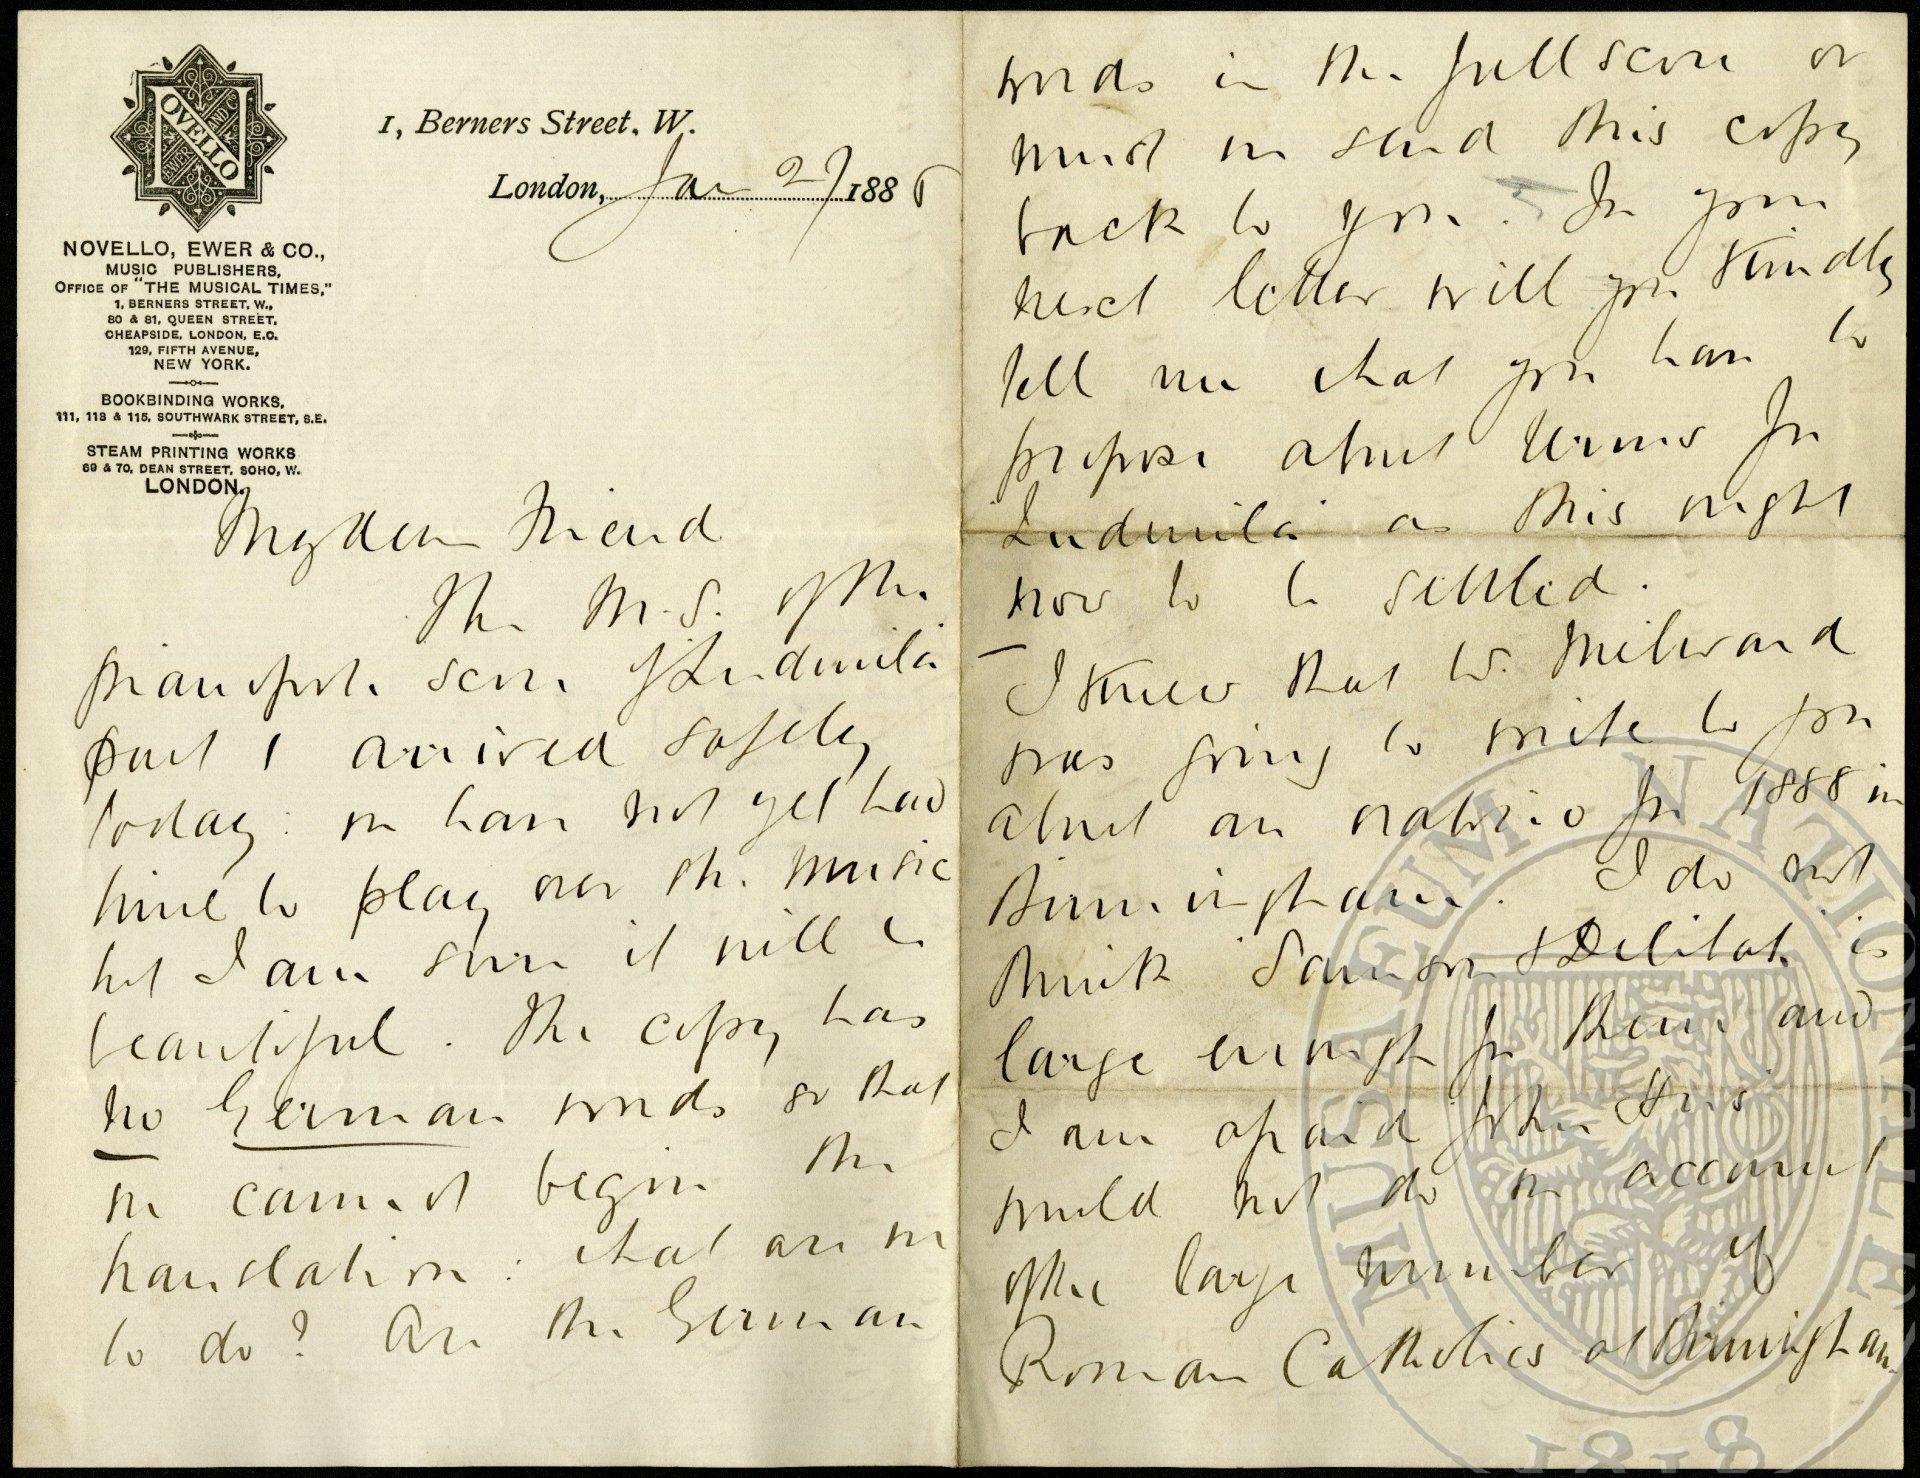 NOVELLO
AND
EWER
NOVELLO, EWER & CO.,
MUSIC PUBLISHERS,
OFFICE OF "THE MUSICAL TIMES,"
1, BERNERS STREET, W.,
80 & 81, QUEEN STREET,
CHEAPSIDE, LONDON, E.C.
129, FIFTH AVENUE,
NEW YORK.
BOOKBINDING WORKS,
111, 113 & 115, SOUTHWARK STREET, S.E.
STEAM PRINTING WORKS
69 & 70, DEAN STREET, SOHO, W.
LONDON.
1, Berners Street, W.
London, Jan 27 1886
My dear Friend
The M.S. of the
pianoforte score of Ludmila
part 1 arrived safely
today: we have not yet had
time to play over the music
but I am sure it will be
beautiful. The copy has
no German words so that
we cannot begin the
translation: what are we
to do? Are the German
words in the full score or
must we send this copy
back to you. In your
next letter will you kindly
tell me what you have to
propose about terms for
Ludmila as this ought
now to be settled.
I knew that Mr. Milward
was going to write to you
about an oratorio for 1888 in
Birmingham. I do not
think Samson & Delilah is
large enough for them and
I am afraid John Hus
would not do on account
of the large number of
Roman Catholics at Birmingham
MUSAEUM NATIONALE
1818